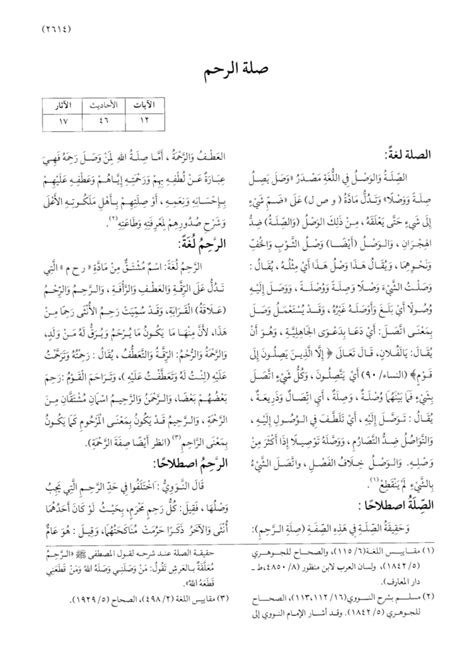 (٢٦١٤)
صلة الرحم
الآيات الأحاديث الآثار
١٢ ٤٦ ١٧
الصلة لغةً:
الصِّلَةُ وَالوَصْلُ فِي اللُّغَةِ مَصْدَرُ «وَصَلَ يَصِلُ
صِلَةً وَوَصْلًا» وَتَدُلُّ مَادَّةُ (و ص ل) عَلَى «ضَمِّ شَيْءٍ
إِلَى شَيْءٍ حَتَّى يَعْلَقَهُ ، مِنْ ذَلِكَ الوَصْلُ (وَالصِّلَةُ) ضِدُّ
الهِجْرَانِ ، وَالوَصْلُ (أَيْضًا) وَصْلُ الثَّوْبِ وَالخُفِّ
وَنَحْوِهِمَا ، وَيُقَالُ هَذَا وَصْلُ هَذَا أَيْ مِثْلُهُ ، يُقَالُ :
وَصَلْتُ الشَّيْءَ وَصْلًا وَصِلَةً ، وَوَصَلَ إِلَيْهِ
وُصُولًا أَيْ بَلَغَ وَأَوْصَلَهُ غَيْرُهُ ، وَقَدْ يُسْتَعْمَلُ وَصَلَ
بِمَعْنَى اتَّصَلَ: أَيْ دَعَا بِدَعْوَى الجَاهِلِيَّةِ ، وَهُوَ أَنْ
يُقَالَ: يَالَفُلَانٍ، قَالَ تَعَالَى ﴿ إِلَّا الَّذِينَ يَصِلُونَ إِلَى
قَوْمٍ﴾ (النساء/ ٩٠) أَيْ يَتَّصِلُونَ ، وَكُلُّ شَيْءٍ اتَّصَلَ
بِشَيْءٍ فَمَا بَيْنَهُمَا وُصْلَةٌ ، وَصِلَةٌ، أَيِ اتِّصَالٌ وَذَرِيعَةٌ ،
يُقَالُ : تَوَصَّلَ إِلَيْهِ ، أَيْ تَلَطَّفَ فِي الوُصُولِ إِلَيْهِ ،
وَالتَّوَاصُلُ ضِدُّ التَّصَارُمِ ، وَوَصَّلَهُ تَوْصِيلًا إِذَا أَكْثَرَ مِنْ
وَصْلِهِ. وَالوَصْلُ خِلَافُ الفَصْلِ ، وَاتَّصَلَ الشَّيْءُ
بِالشَّيْءِ لَمْ يَنْقَطِعْ»(١)
الصِّلَةُ اصطلاحًا :
وَحَقِيقَةُ الصِّلَةِ فِي هَذِهِ الصِّفَةِ (صِلَةِ الرَّحِمِ):
العَطْفُ وَالرَّحْمَةُ ، أَمَّا صِلَةُ اللهِ لِمَنْ وَصَلَ رَحِمَهُ فَهِيَ
عِبَارَةٌ عَنْ لُطْفِهِ بِهِمْ وَرَحْمَتِهِ إِيَّاهُمْ وَعَطْفِهِ عَلَيْهِمْ
بِإِحْسَانِهِ وَنِعَمِهِ ، أَوْ صِلَتِهِمْ بِأَهْلِ مَلَكُوتِهِ الأَعْلَى
وَشَرْحِ صُدُورِهِمْ لِمَعْرِفَتِهِ وَطَاعَتِهِ(٢).
الرَّحِمُ لُغَةً:
الرَّحِمُ لُغَةً: اسْمٌ مُشْتَقٌّ مِنْ مَادَّةِ «ر ح م» الَّتِي
تَدُلُّ عَلَى الرِّقَّةِ وَالعَطْفِ وَالرَّأْفَةِ ، وَالرَّحِمُ وَالرُّحْمُ
(عَلَاقَةُ) القَرَابَةِ، وَقَدْ سُمِّيَتْ رَحِمُ الأُنْثَى رَحِمًا مِنْ
هَذَا، لِأَنَّ مِنْهَا مَا يَكُونُ مَا يُرْحَمُ وَيُرَقُّ لَهُ مِنْ وَلَدٍ،
وَالرَّحْمَةُ وَالرُّحْمُ: الرِّقَّةُ وَالتَّعَطُّفُ، يُقَالُ : رَحِمْتُهُ وَتَرَحَّمْتُ
عَلَيْهِ (لِنْتُ لَهُ وَتَعَطَّفْتُ عَلَيْهِ )، وَتَرَاحَمَ القَوْمُ : رَحِمَ
بَعْضُهُمْ بَعْضًا، وَالرَّحْمَنُ وَالرَّحِيمُ اسْمَانِ مُشْتَقَّانِ مِنَ
الرَّحْمَةِ ، وَالرَّحِيمُ قَدْ يَكُونُ بِمَعْنَى المَرْحُومِ كَمَا يَكُونُ
بِمَعْنَى الرَّاحِمِ(٣) (انظر أيضًا صِفَةَ الرَّحْمَةِ).
الرَّحِمُ اصطلاحًا:
قَالَ النَّوَوِيُّ : اخْتَلَفُوا فِي حَدِّ الرَّحِمِ الَّتِي يَجِبُ
وَصْلُهَا ، فَقِيلَ: كُلُّ رَحِمٍ مَحْرَمٍ، بِحَيْثُ لَوْ كَانَ أَحَدُهُمَا
أُنْثَى وَالآخَرُ ذَكَرًا حَرُمَتْ مُنَاكَحَتُهُمَا، وَقِيلَ : هُوَ عَامٌّ
(١) مقاييس اللغة (٦/ ١١٥)، والصحاح للجوهري
(٥/ ١٨٤٢)، ولسان العرب لابن منظور (٨/ ٤٨٥٠ـ ط
دار المعارف).
(٢) مسلم بشرح النووي (١٦/ ١١٢، ١١٣)، والصحاح
للجوهري (٥/ ١٨٤٢). وقد أشار الإمام النووي إلى
حقيقة الصلة عند شرحه لقول المصطفى ﷺ «الرَّحِمُ
مُعَلَّقَةٌ بِالعَرْشِ تَقُولُ: مَنْ وَصَلَنِي وَصَلَهُ اللهُ وَمَنْ قَطَعَنِي
قَطَعَهُ اللهُ».
(٣) مقاييس اللغة (٢/ ٤٩٨)، الصحاح (٥/ ١٩٢٩).